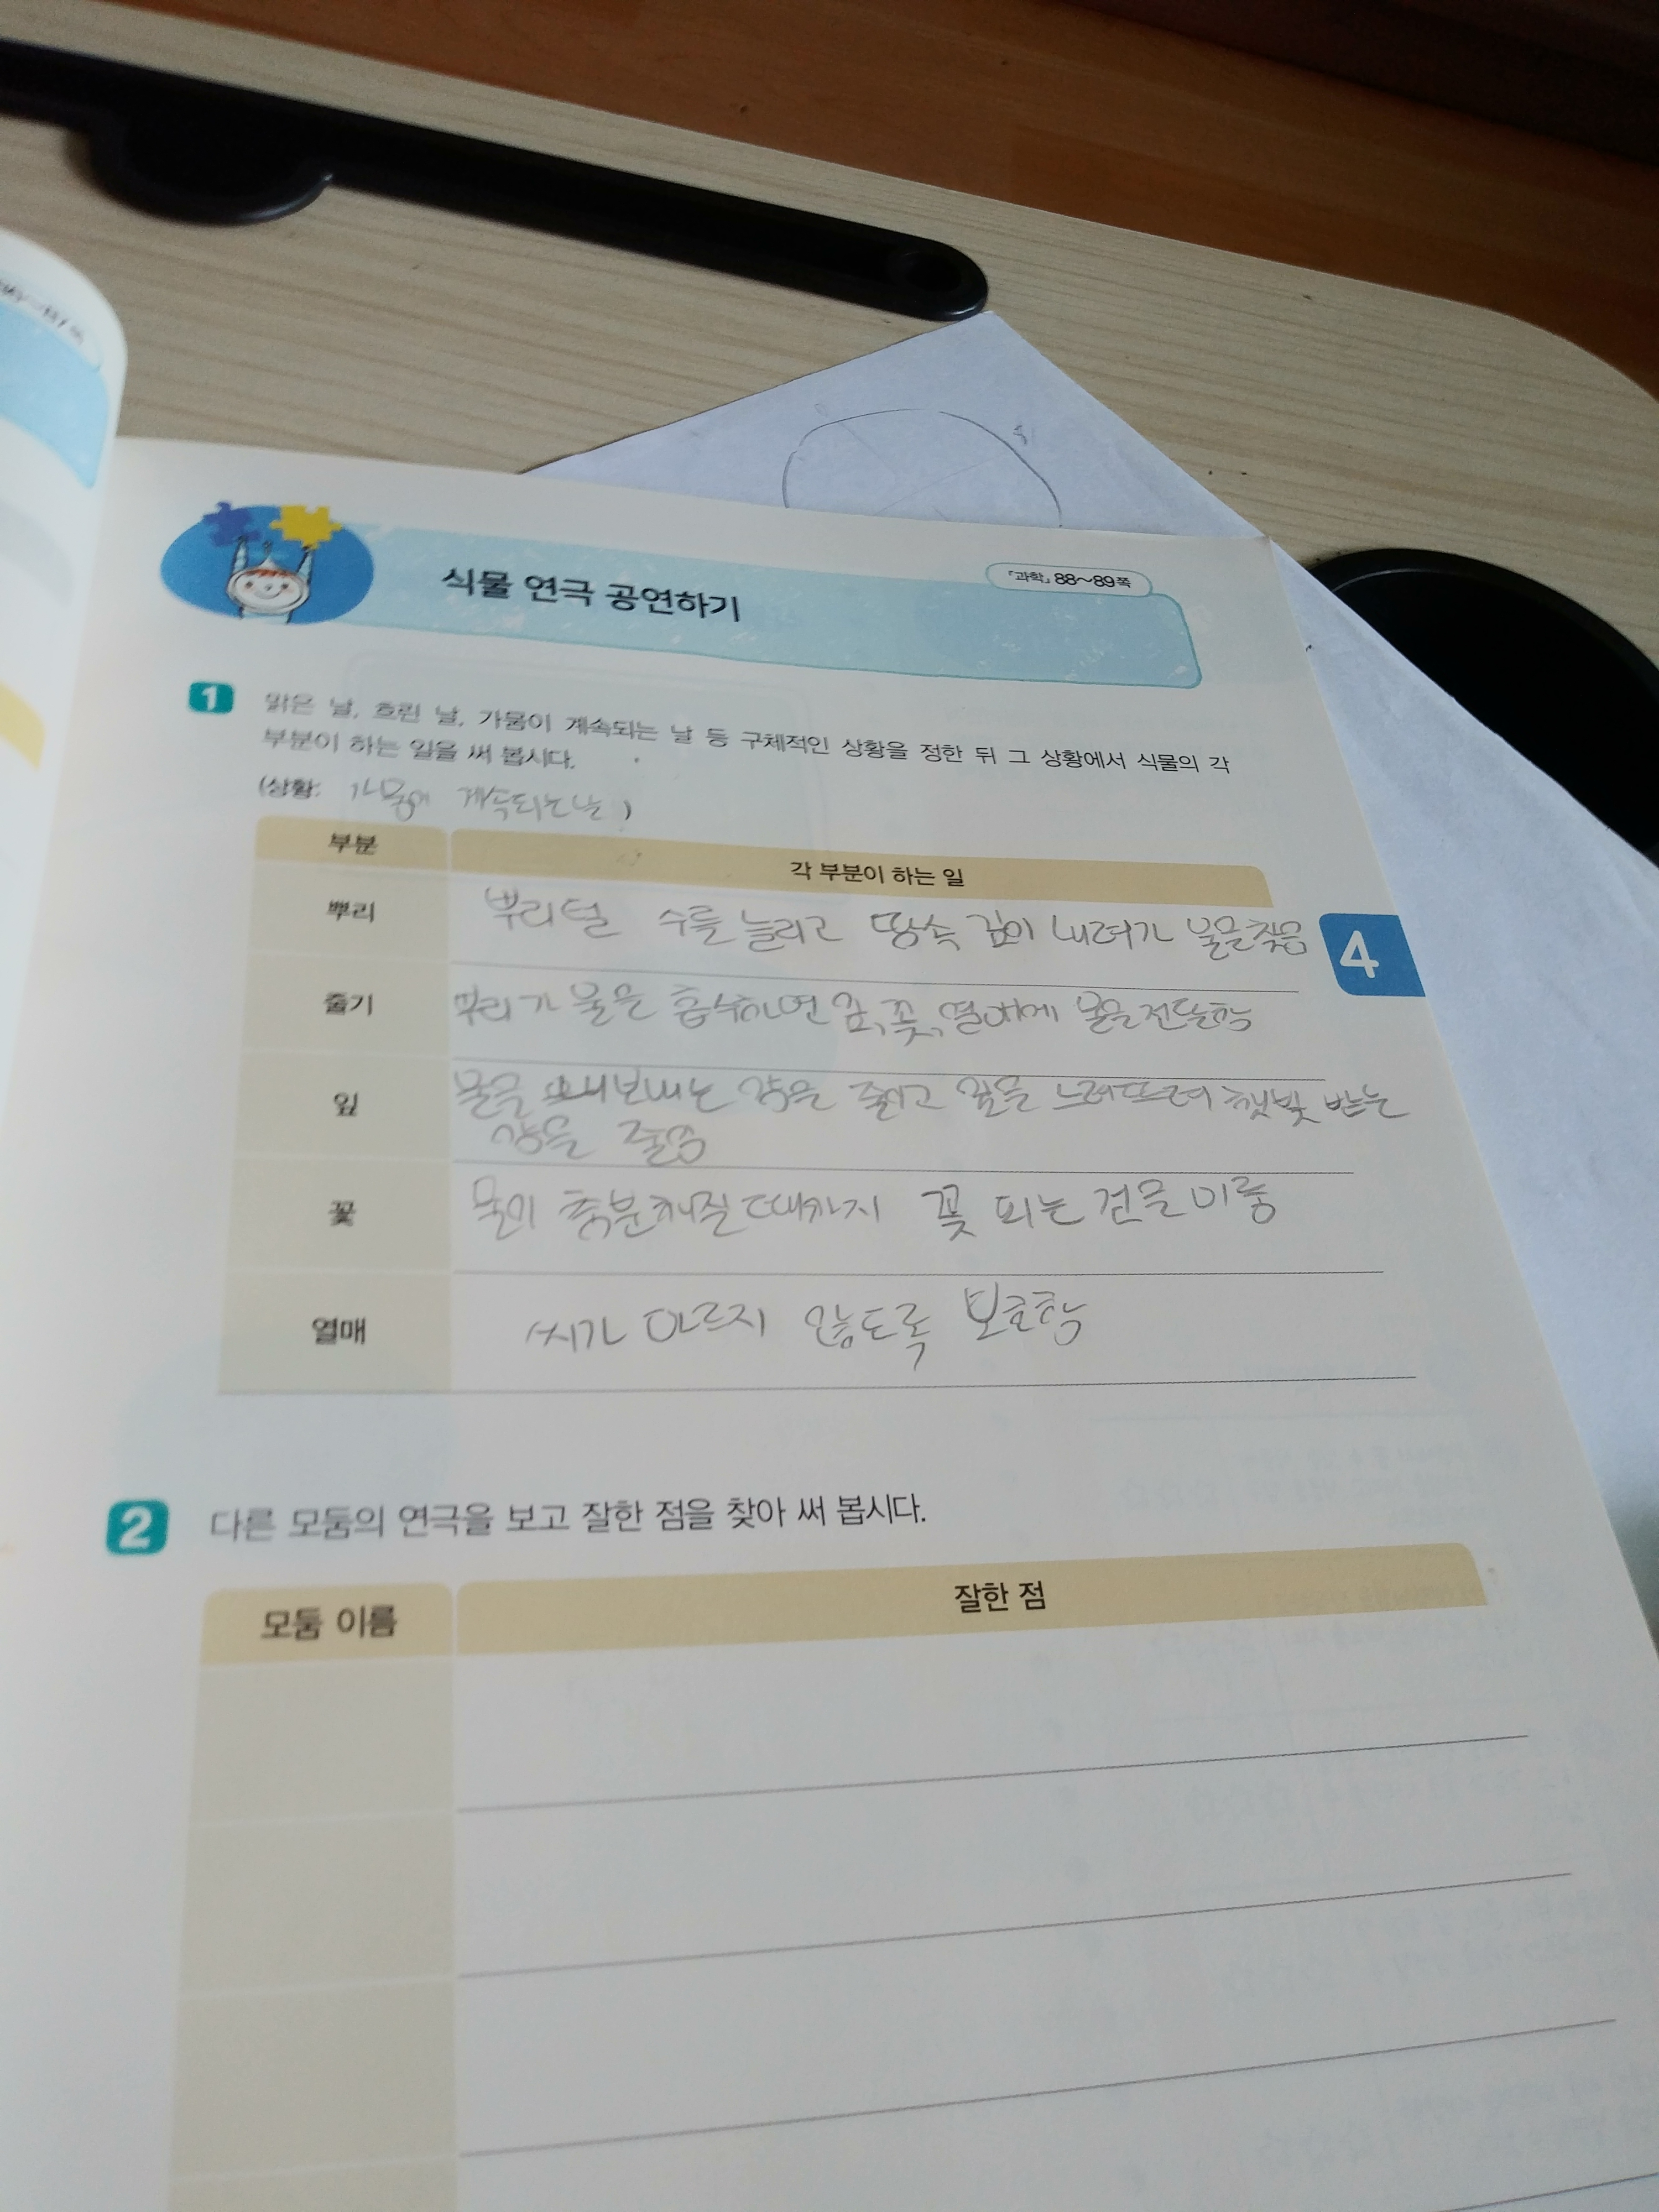 식물 연극 공연하기
『과학』 88~89쪽
1 맑은 날, 흐린 날, 가뭄이 계속되는 날 등 구체적인 상황을 정한 뒤 그 상황에서 식물의 각
부분이 하는 일을 써 봅시다.
(상황: 가뭄이 계속되는 날)
부분 각 부분이 하는 일
뿌리 뿌리털 수를 늘리고 땅속 깊이 내려가 물을 찾음
4
줄기 뿌리가 물을 흡수하면 잎, 꽃, 열매에 물을 전달함
잎 물을 내보내는 양을 줄이고 잎을 늘어뜨려 햇빛 받는
양을 줄임
꽃 물이 충분해질 때까지 꽃 피는 건을 미룸
열매 씨가 마르지 않도록 보호함
2 다른 모둠의 연극을 보고 잘한 점을 찾아 써 봅시다.
모둠 이름 잘한 점